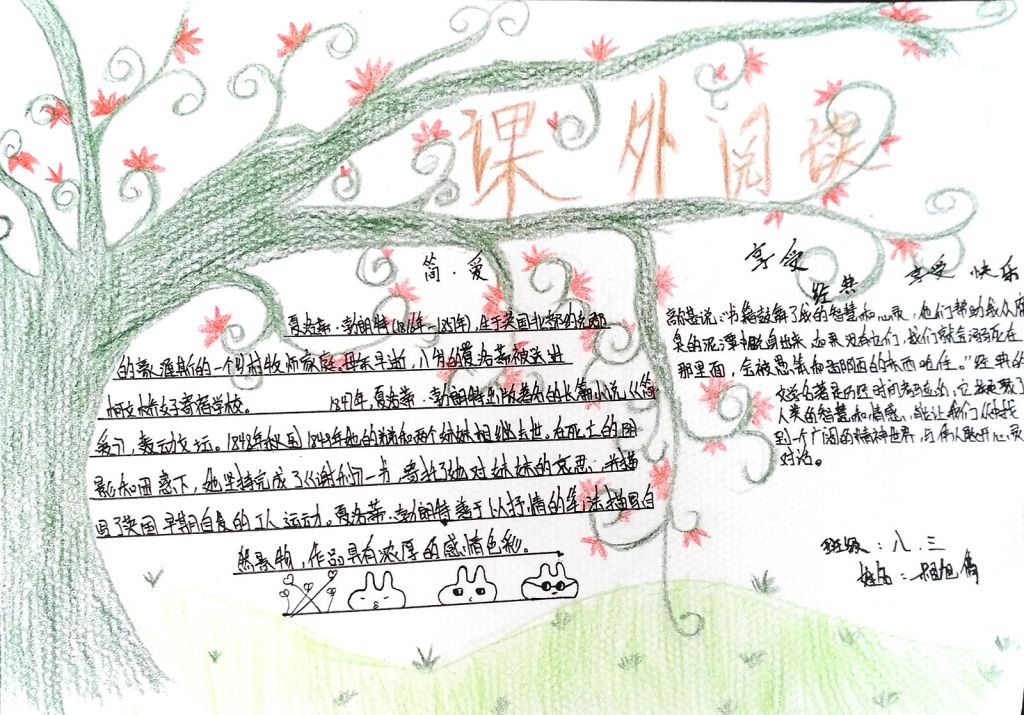 课外阅读
简·爱
夏洛蒂·勃朗特(1816年-1855年),生于英国北部约克郡
的豪渥斯的一个乡村牧师家庭。母亲早逝,八岁的夏洛蒂被送进
柯文桥女子寄宿学校。 1847年,夏洛蒂·勃朗特出版著名的长篇小说《简
爱》,轰动文坛。1848年秋到1849年她的和两个妹妹相继去世。在死亡的阴
影和困惑下,她坚持完成了《谢利》一书,寄托了她对妹妹的哀思,并描
写了英国早期自发的工人运动。夏洛蒂·勃朗特善于以抒情的笔法描写自
然景物,作品具有浓厚的感情色彩。
享受
经典
享受 快乐
说:"书籍鼓舞了我的智慧和心灵,它们帮助我从腐
臭的泥潭中脱身出来,如果没有它们,我们就会溺死在
那里面,会被愚笨和鄙陋的东西呛住。"经典的
文学名著是历经时间考验的,它凝聚了
人类的智慧和情感,能让我们从中找
到一个广阔的精神世界,与伟人敞开心灵
对话。
班级:八.三
姓名:旭